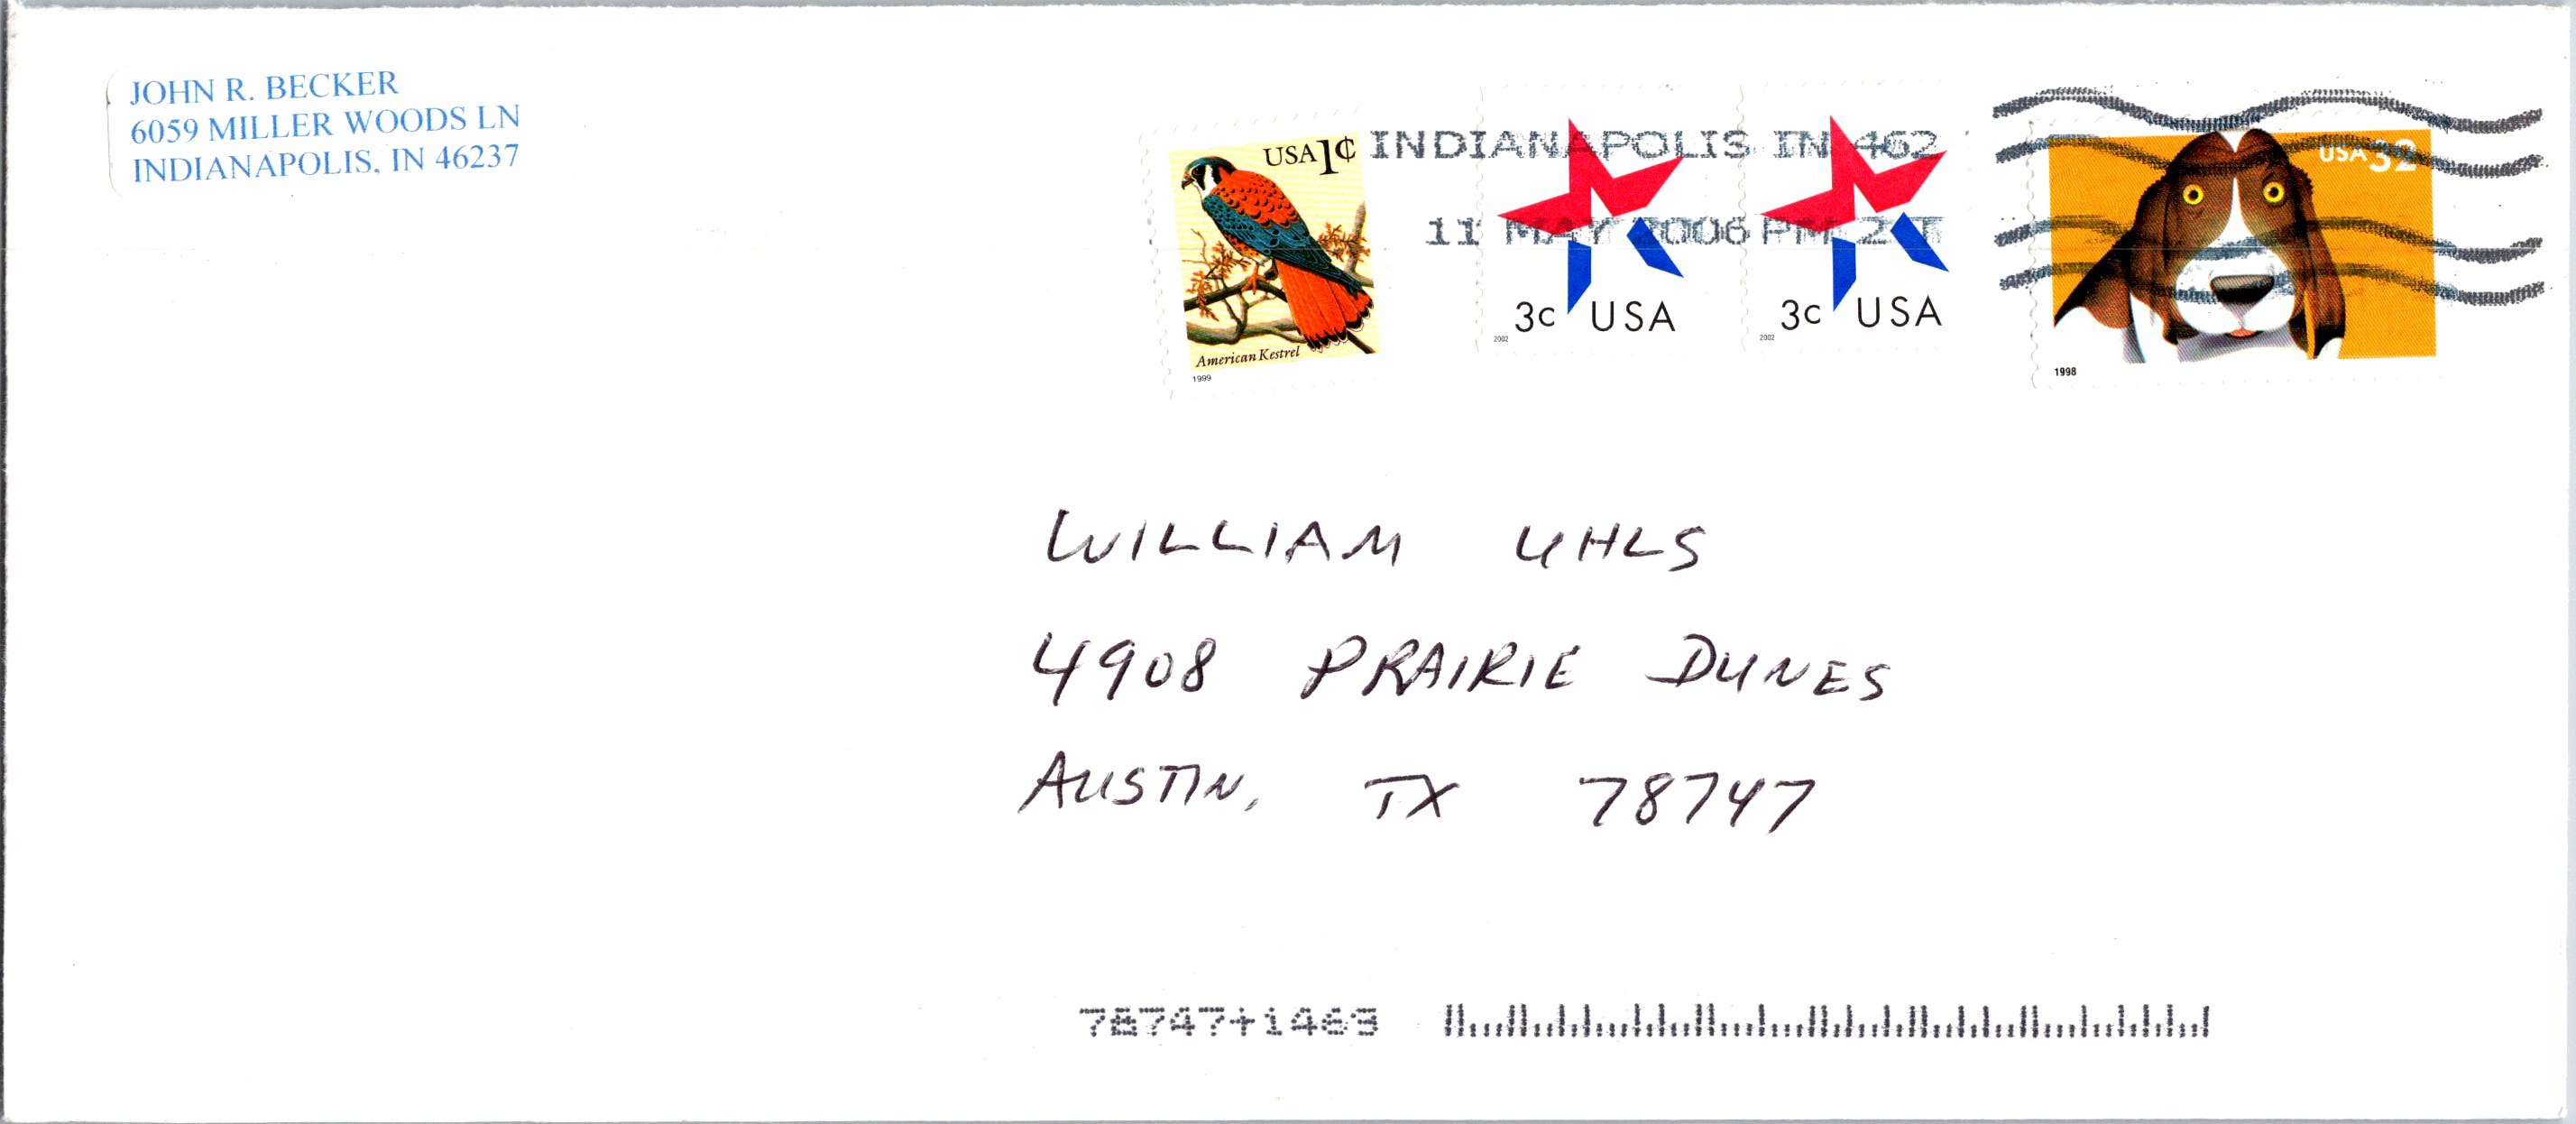 JOHN R. BECKER
6059 MILLER WOODS LN
INDIANAPOLIS, IN 46237
USA 1¢
American Kestrel
1999
INDIANAPOLIS IN 462
11 MAY 2006 PM 2 T
3c USA
2002
3c USA
2002
USA 32
1998
WILLIAM UHLS
4908 PRAIRIE DUNES
AUSTIN, TX 78747
78747+1463